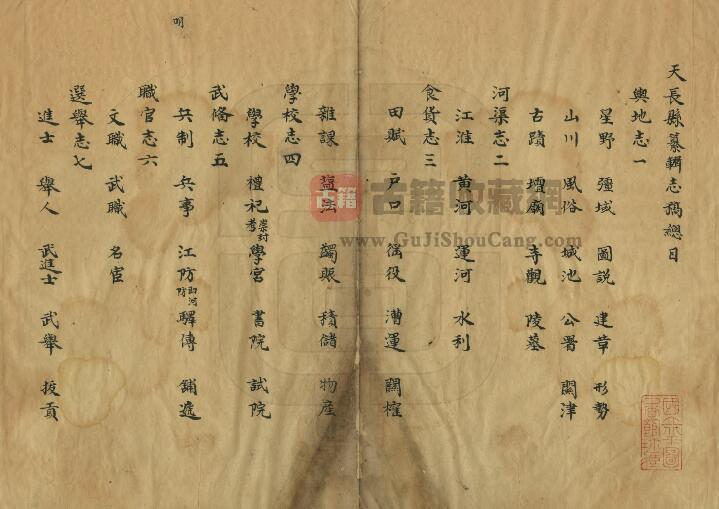 天長縣纂輯志稿總目
輿地志一
星野 疆域 圖説 建革 形勢
山川 風俗 城池 公署 關津
古蹟 壇廟 寺觀 陵墓
河渠志二
江淮 黄河 運河 水利
食貨志三
田賦 戸口 徭役 漕運 關榷
雜課 鹽法 蠲賑 積儲 物産
學校志四
學校 禮祀 崇封考 學宮 書院 試院
武備志五
兵制 兵事 江防 即河防 驛傳 鋪遞
職官志六
文職 武職 名宦
選舉志七
進士 舉人 武進士 武舉 拔貢
明
古籍 古籍收藏网
www.GuJiShouCang.com